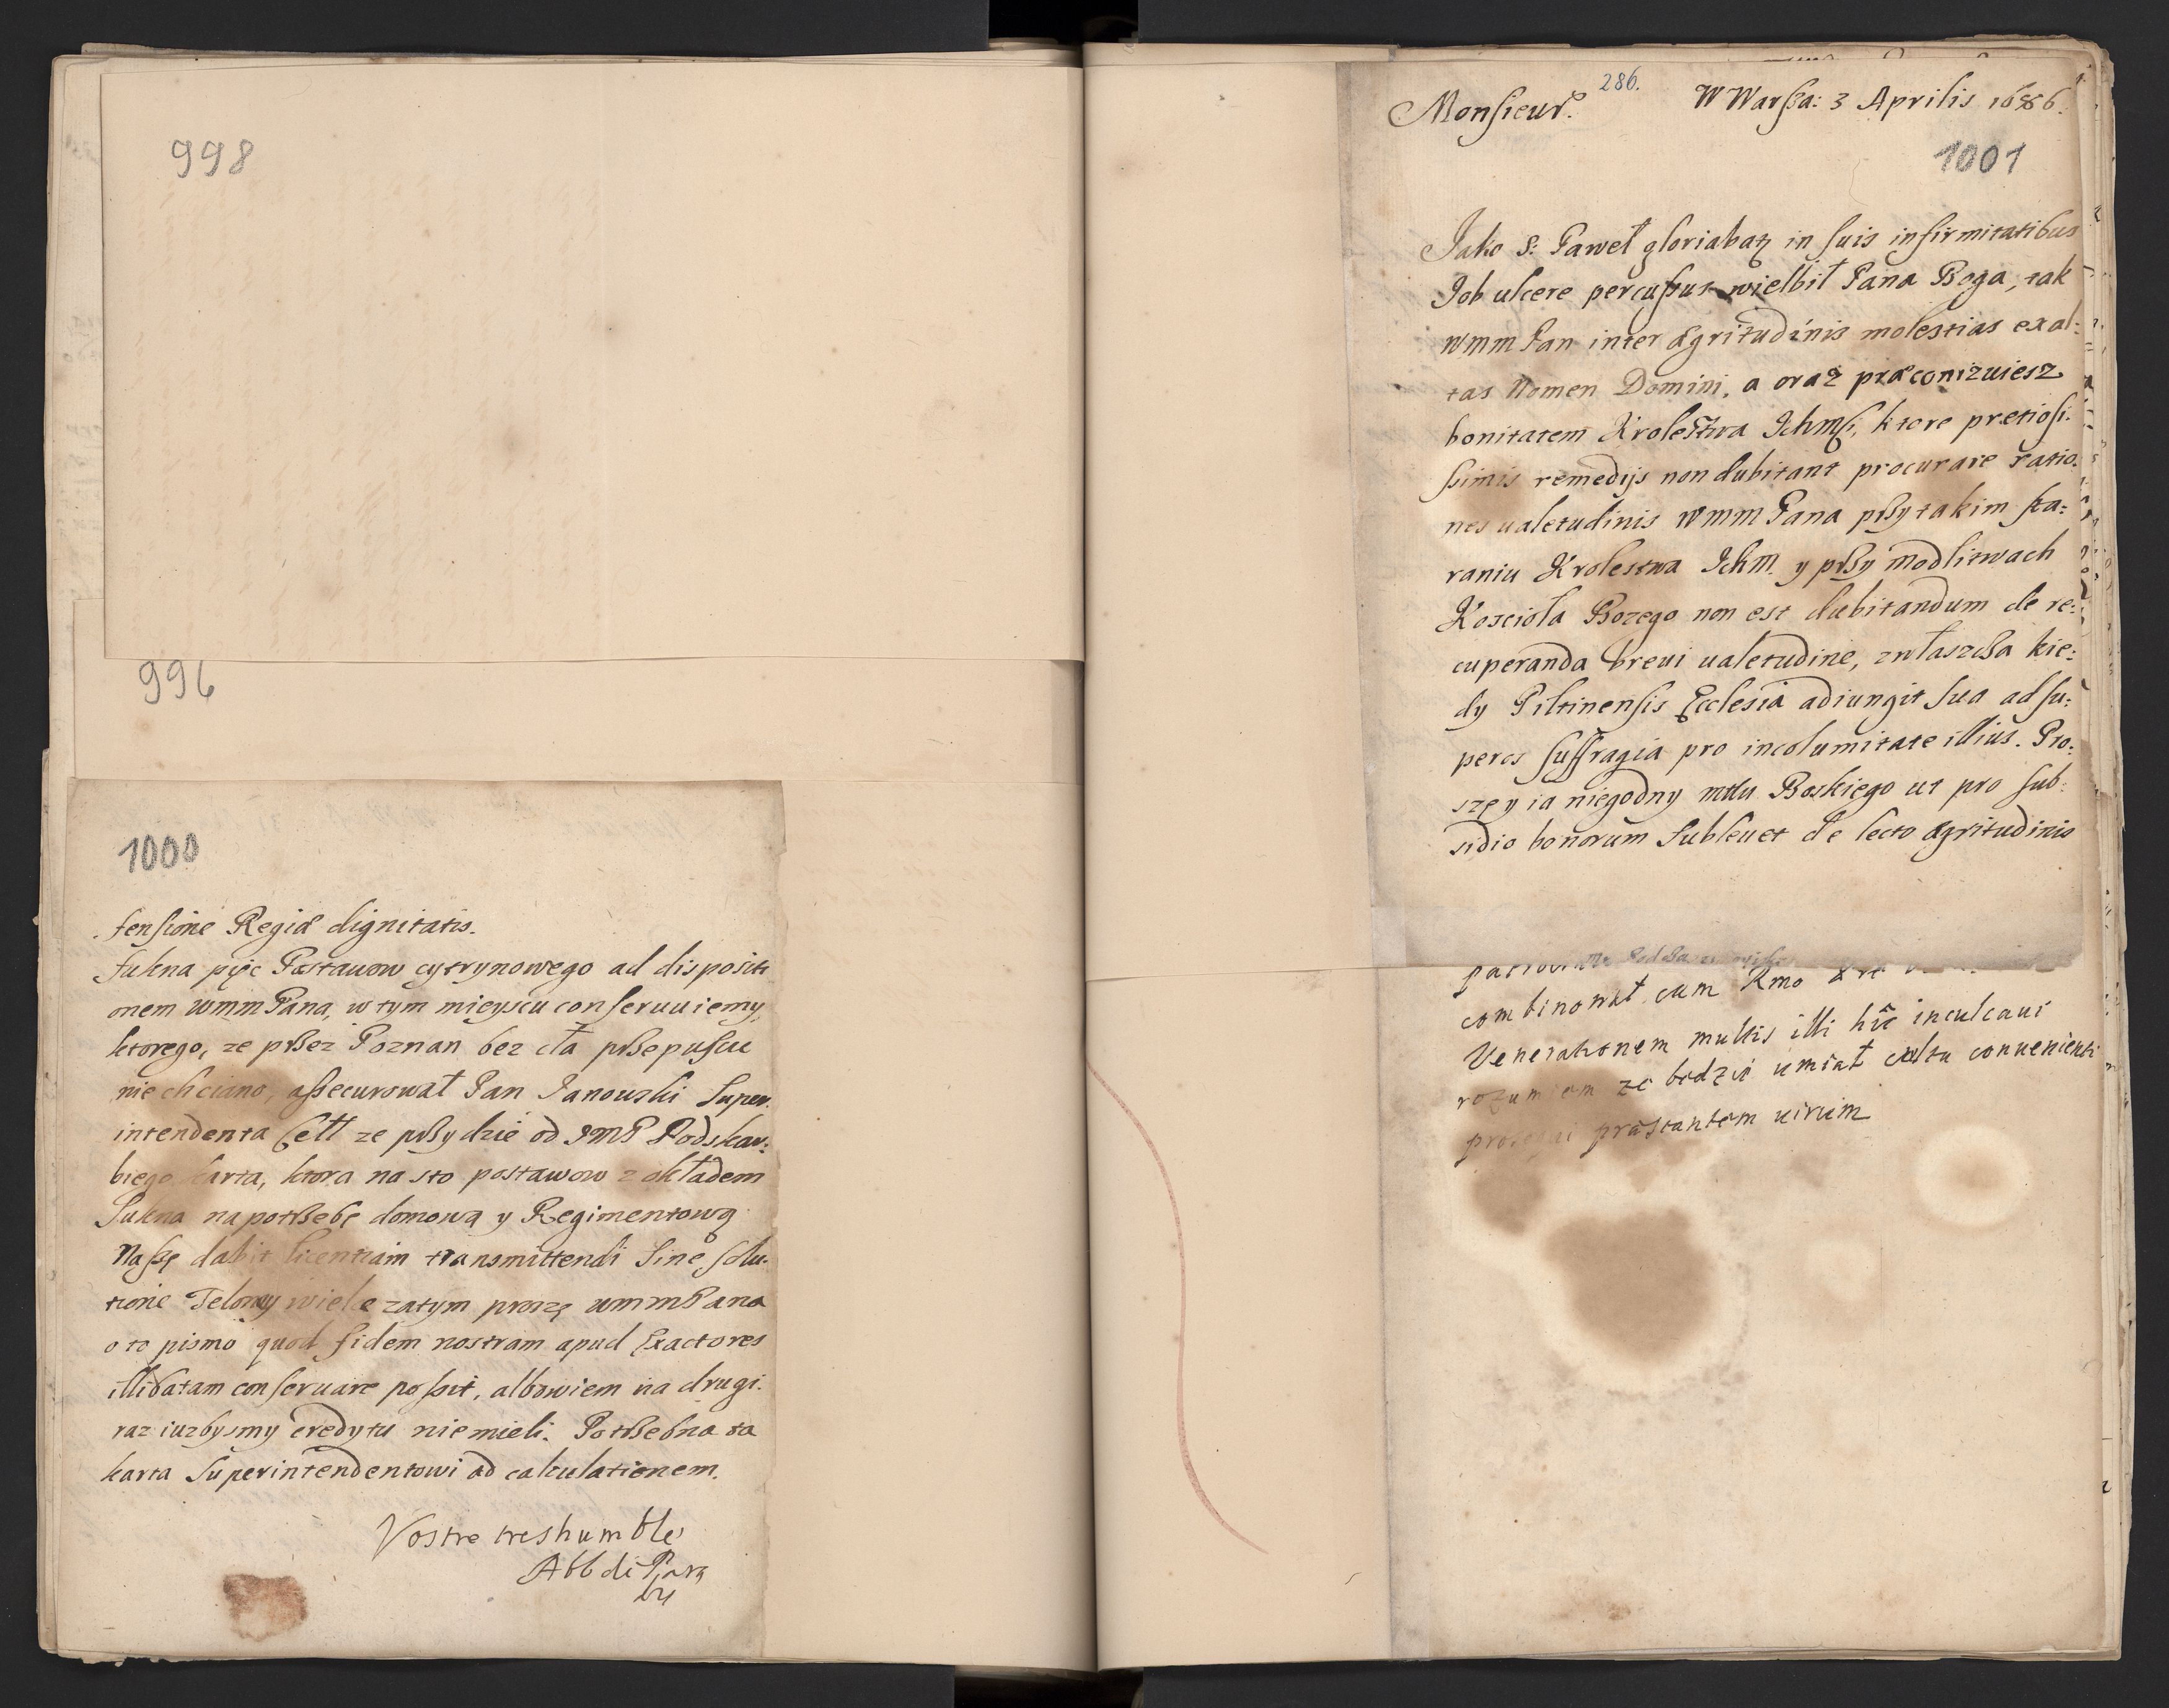 998
996
1000
fensione Regiæ dignitatis.
Sukna pięc Postawow cytrynowego ad disposit
onem WmmPana, w tym mieyscu conseruuiemy,
ktorego, ze przez Poznan bez cła przepuscic
nie chciano, assecurował Pan Janowski Super
intendenta Cełł ze przydzie od JMP Podskar:
biego karta, ktora na sto postawow z okładem
Sukna na potrzebę domową y Regimentową
Naszę dabit licentiam transmittendi Sine Solu-
tione Telony wiele zatym proszę WmmPana
o to pismo quod fidem nostram apud Exactores
illibatam conseruare possit, albowiem na drugi
raz iuzbysmy credytu niemieli. Potrzebna ta
karta Superintendentowi ad calculationem.
Vostre treshumble
Abb di
286.
Monsieur.
W Warsza: 3 Aprilis 1686.
1001
Jako S: Paweł gloriabatz in suis infirmitatibus
Job ulcere percussus wielbił Pana Boga, tak
wmm Pan inter ægritudinis molestias exal:
tas Nomen Domini, a oraz præconizuiesz
bonitatem Krolestwa Ichmsci, ktore pretiosi-
ssimis remedijs non dubitant procurare ratio
nes ualetudinis WMM Pana przy takim sta:
raniu Krolestwa Ichm. y przy modlitwach
Kosciola Bozego non est dubitandum de re:
cuperanda breui ualetudine, zwłaszcza kie:
dy Piltinensis Ecclesia adiungit Sua ad su:
peros suffragia pro incolumitate illius. Pro:
szę y ia niegodny mttu Boskiego ut pro sub:
sidio bonorum Subleuet de lecto ægritudinis
combinował cum Rmo
Venerationem multis illi hic inculcaui
rozumiem ze bedzie umiał cultu conuenienti
prosequi præstantem uirum